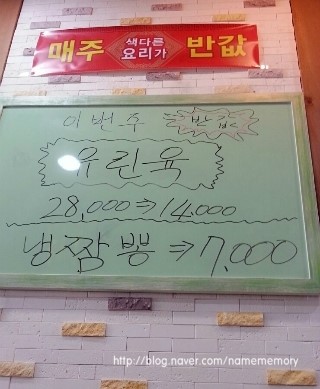 매주 색다른 요리가 반값
이번주 반값
유린육
28,000⇒14,000
냉짬뽕⇒7,000
http://blog.naver.com/namememory